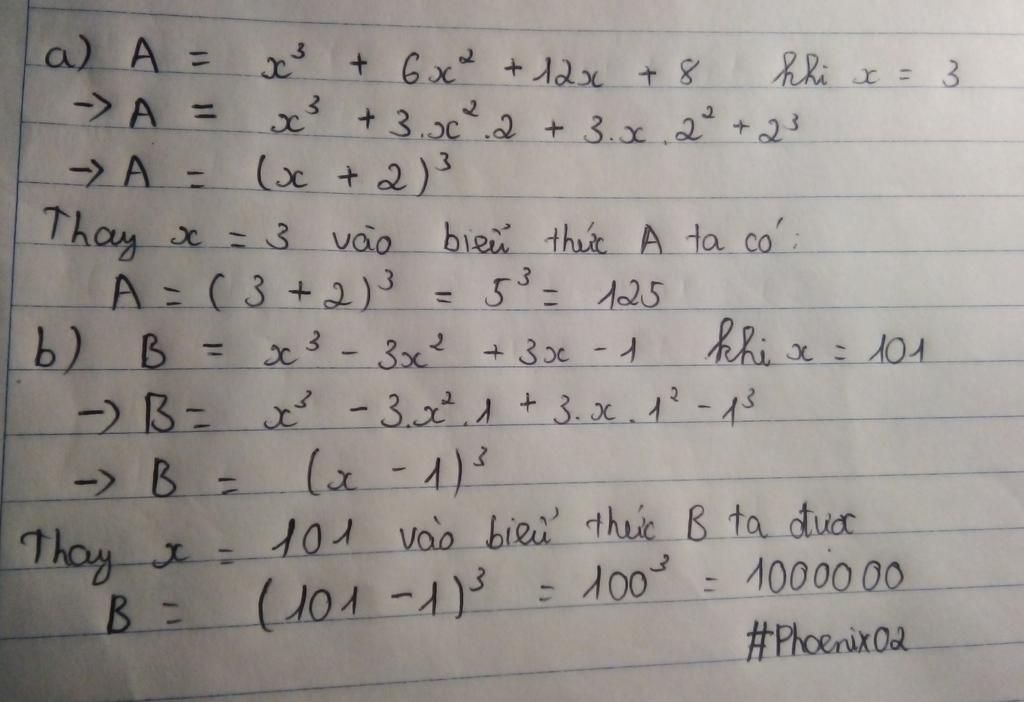 a) A = x³ + 6x² + 12x + 8 khi x = 3
→ A = x³ + 3.x².2 + 3.x.2² + 2³
→ A = (x + 2)³
Thay x = 3 vào biểu thức A ta có:
A = (3 + 2)³ = 5³ = 125
b) B = x³ - 3x² + 3x - 1 khi x = 101
→ B = x³ - 3.x².1 + 3.x.1² - 1³
→ B = (x - 1)³
Thay x = 101 vào biểu thức B ta được
B = (101 - 1)³ = 100³ = 1000000
#Phoenix02